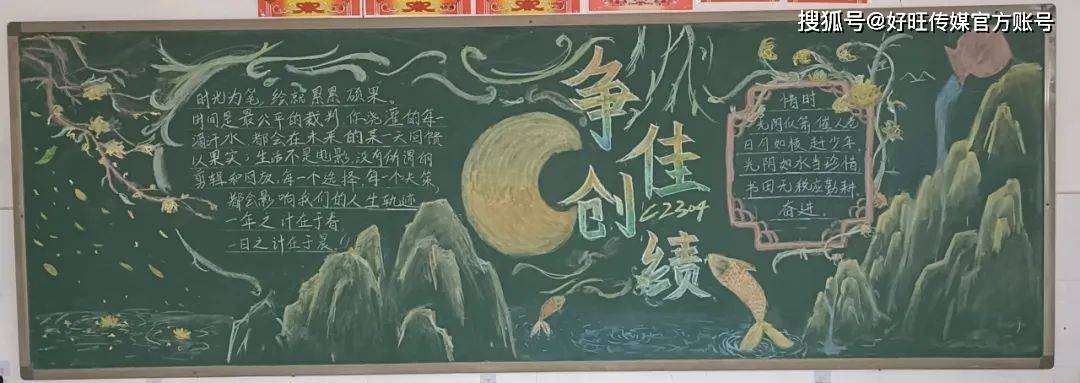 搜狐号@好旺传媒官方账号
时光为笔，绘就累累硕果。
时间是最公平的裁判，你浇灌的每一
滴汗水，都会在未来的某一天回馈
以果实；生活不是电影，没有所谓的
剪辑和回放，每一个选择，每一个决策，
都会影响我们的人生轨迹
一年之计在于春
一日之计在于晨
争创
佳绩
C2304
惜时
光阴似箭催人老
日月如梭赶少年，
光阴如水当珍惜
书田无税应勤耕
奋进。